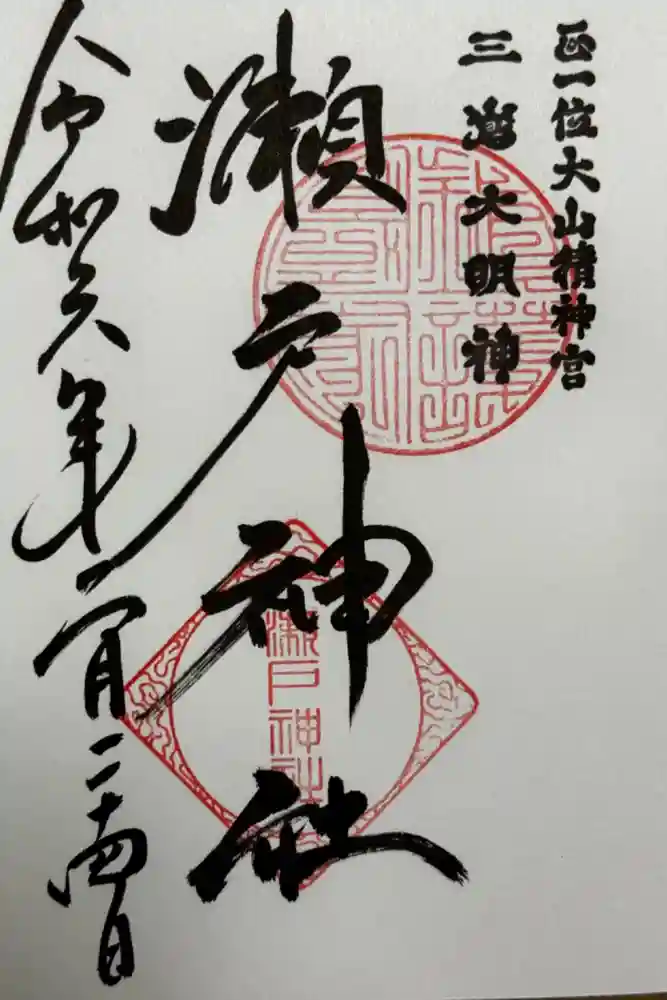 正一位大山積神宮
三嶌大明神
瀬戸神社
令和六年二月二十四日
瀬戸神社